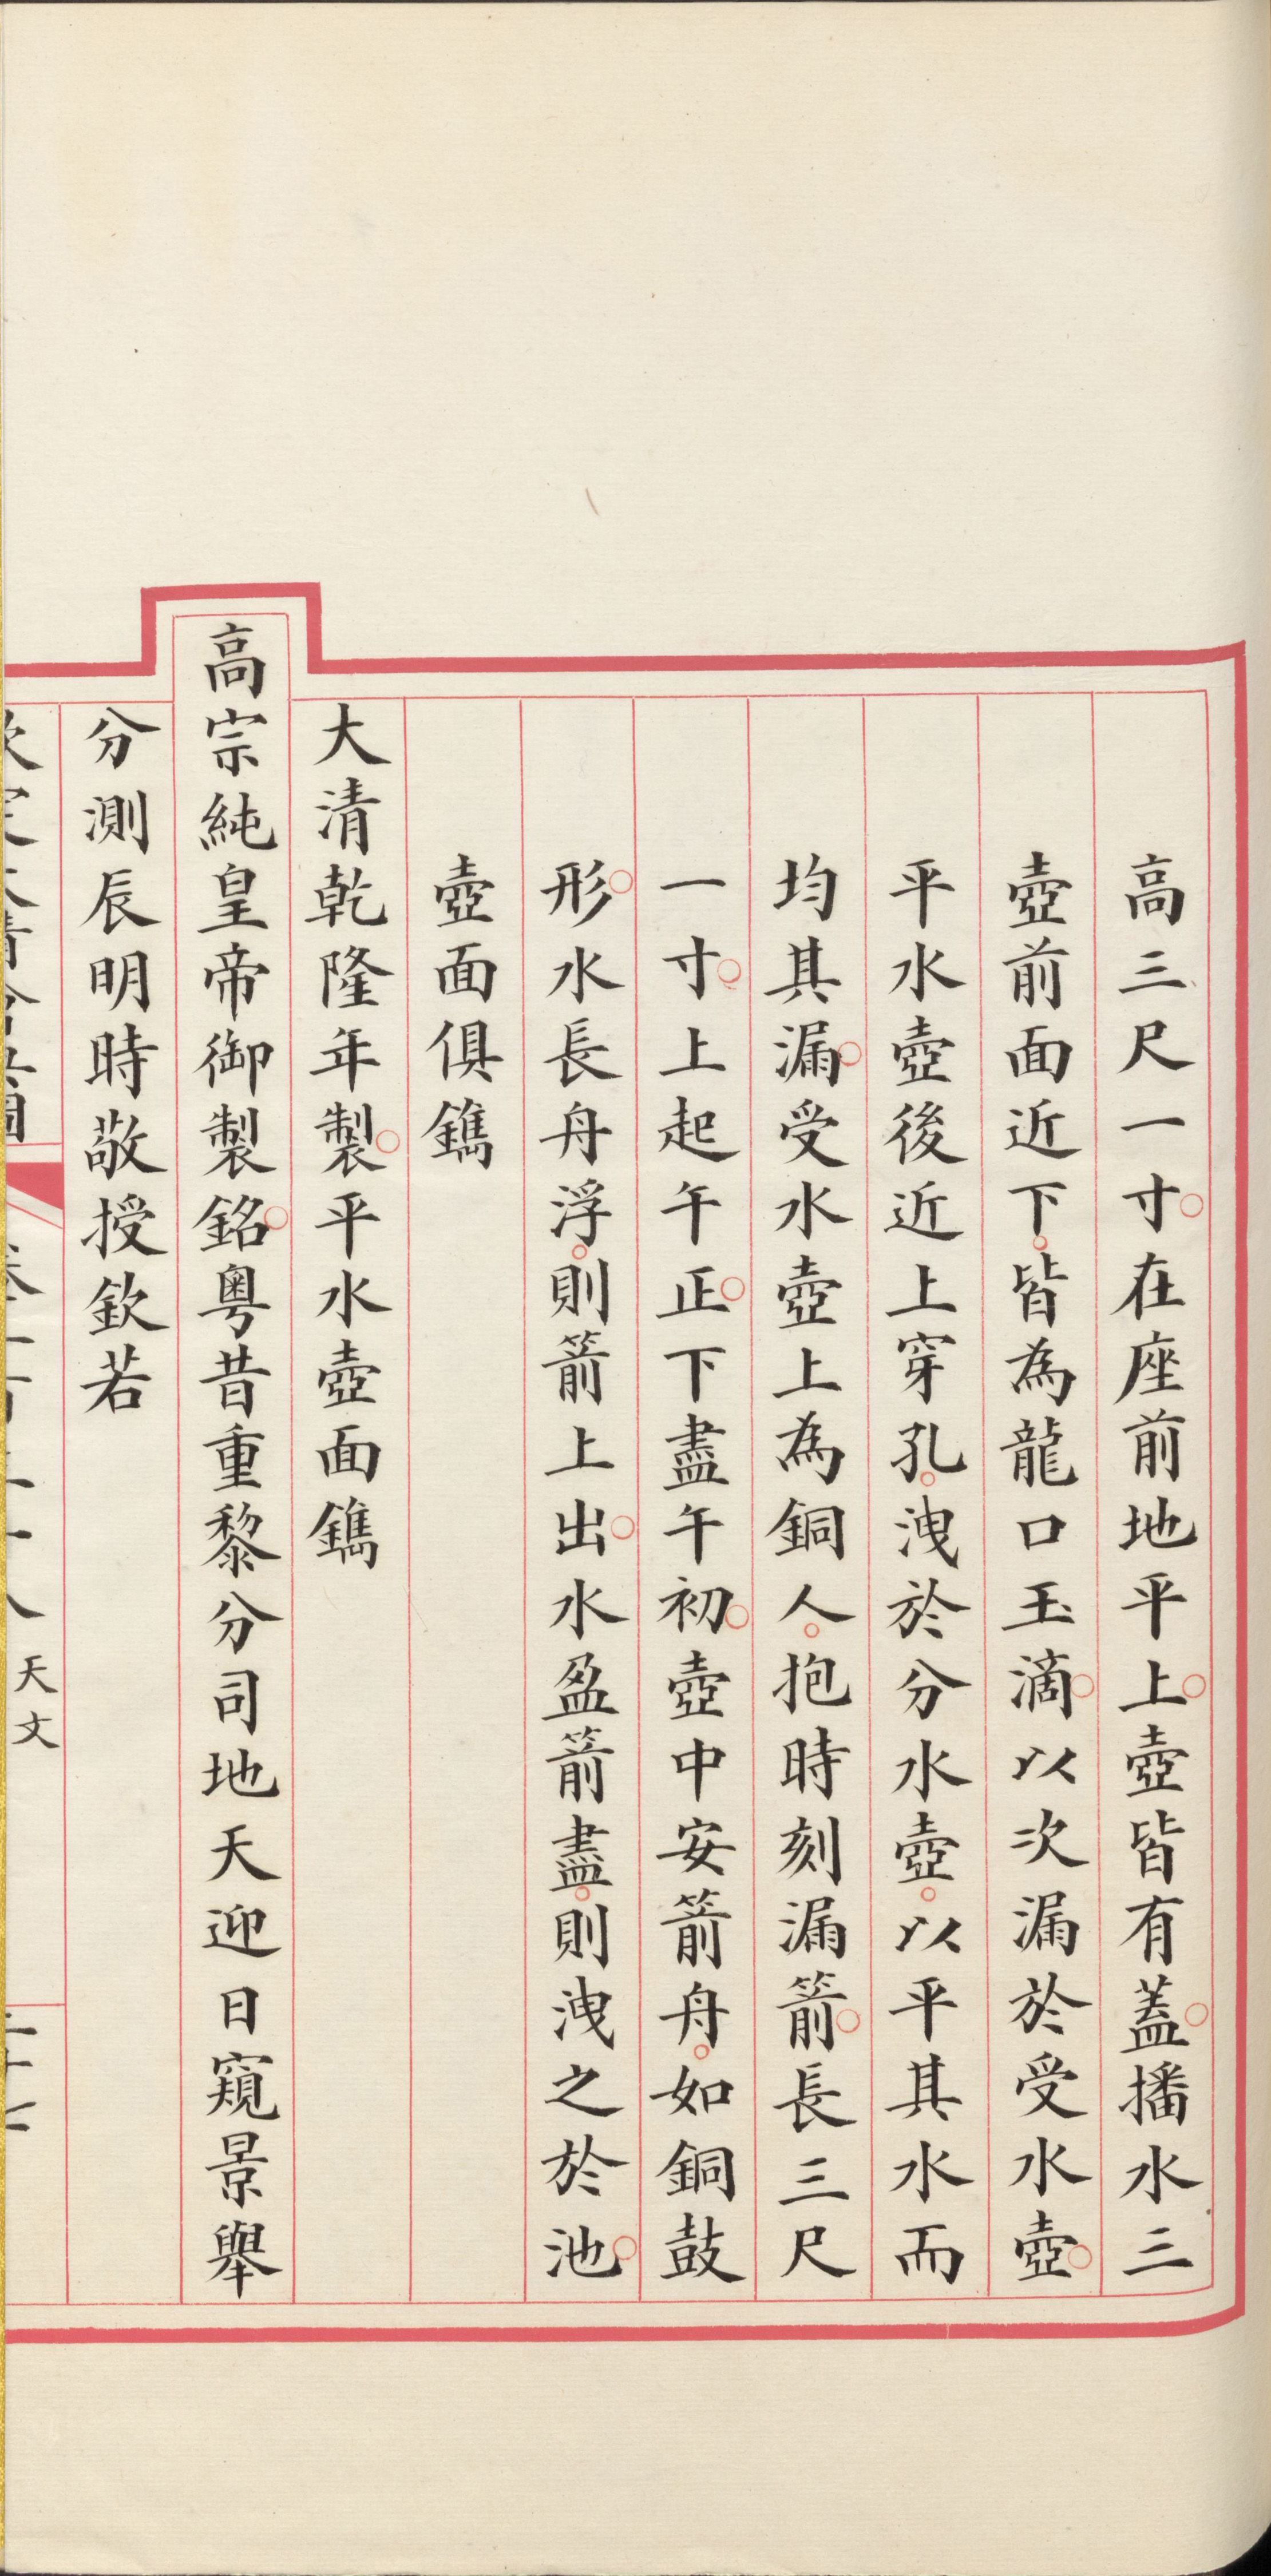 高三尺一寸。在座前地平上。壺皆有蓋。播水三
壺前面近下。皆為龍口玉滴。以次漏於受水壺。
平水壺後近上穿孔。洩於分水壺。以平其水而
均其漏。受水壺上為銅人。抱時刻漏箭。長三尺
一寸。上起午正。下盡午初。壺中安箭舟。如銅鼓
形。水長舟浮。則箭上出。水盈箭盡。則洩之於池。
壺面俱鐫
大清乾隆年製。平水壺面鐫
高宗純皇帝御製銘。粵昔重黎分司地天迎日窺景舉
分測辰明時敬授欽若
天文